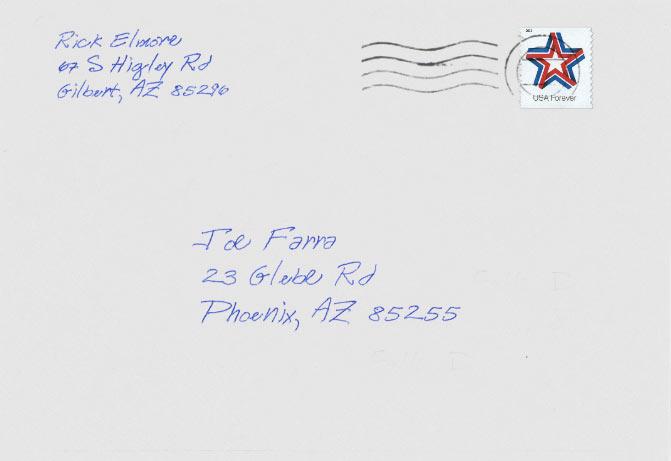 Rick Elmore
67 S Higley Rd
Gilbert, AZ 85296
USA Forever
Joe Farra
23 Glebe Rd
Phoenix, AZ 85255